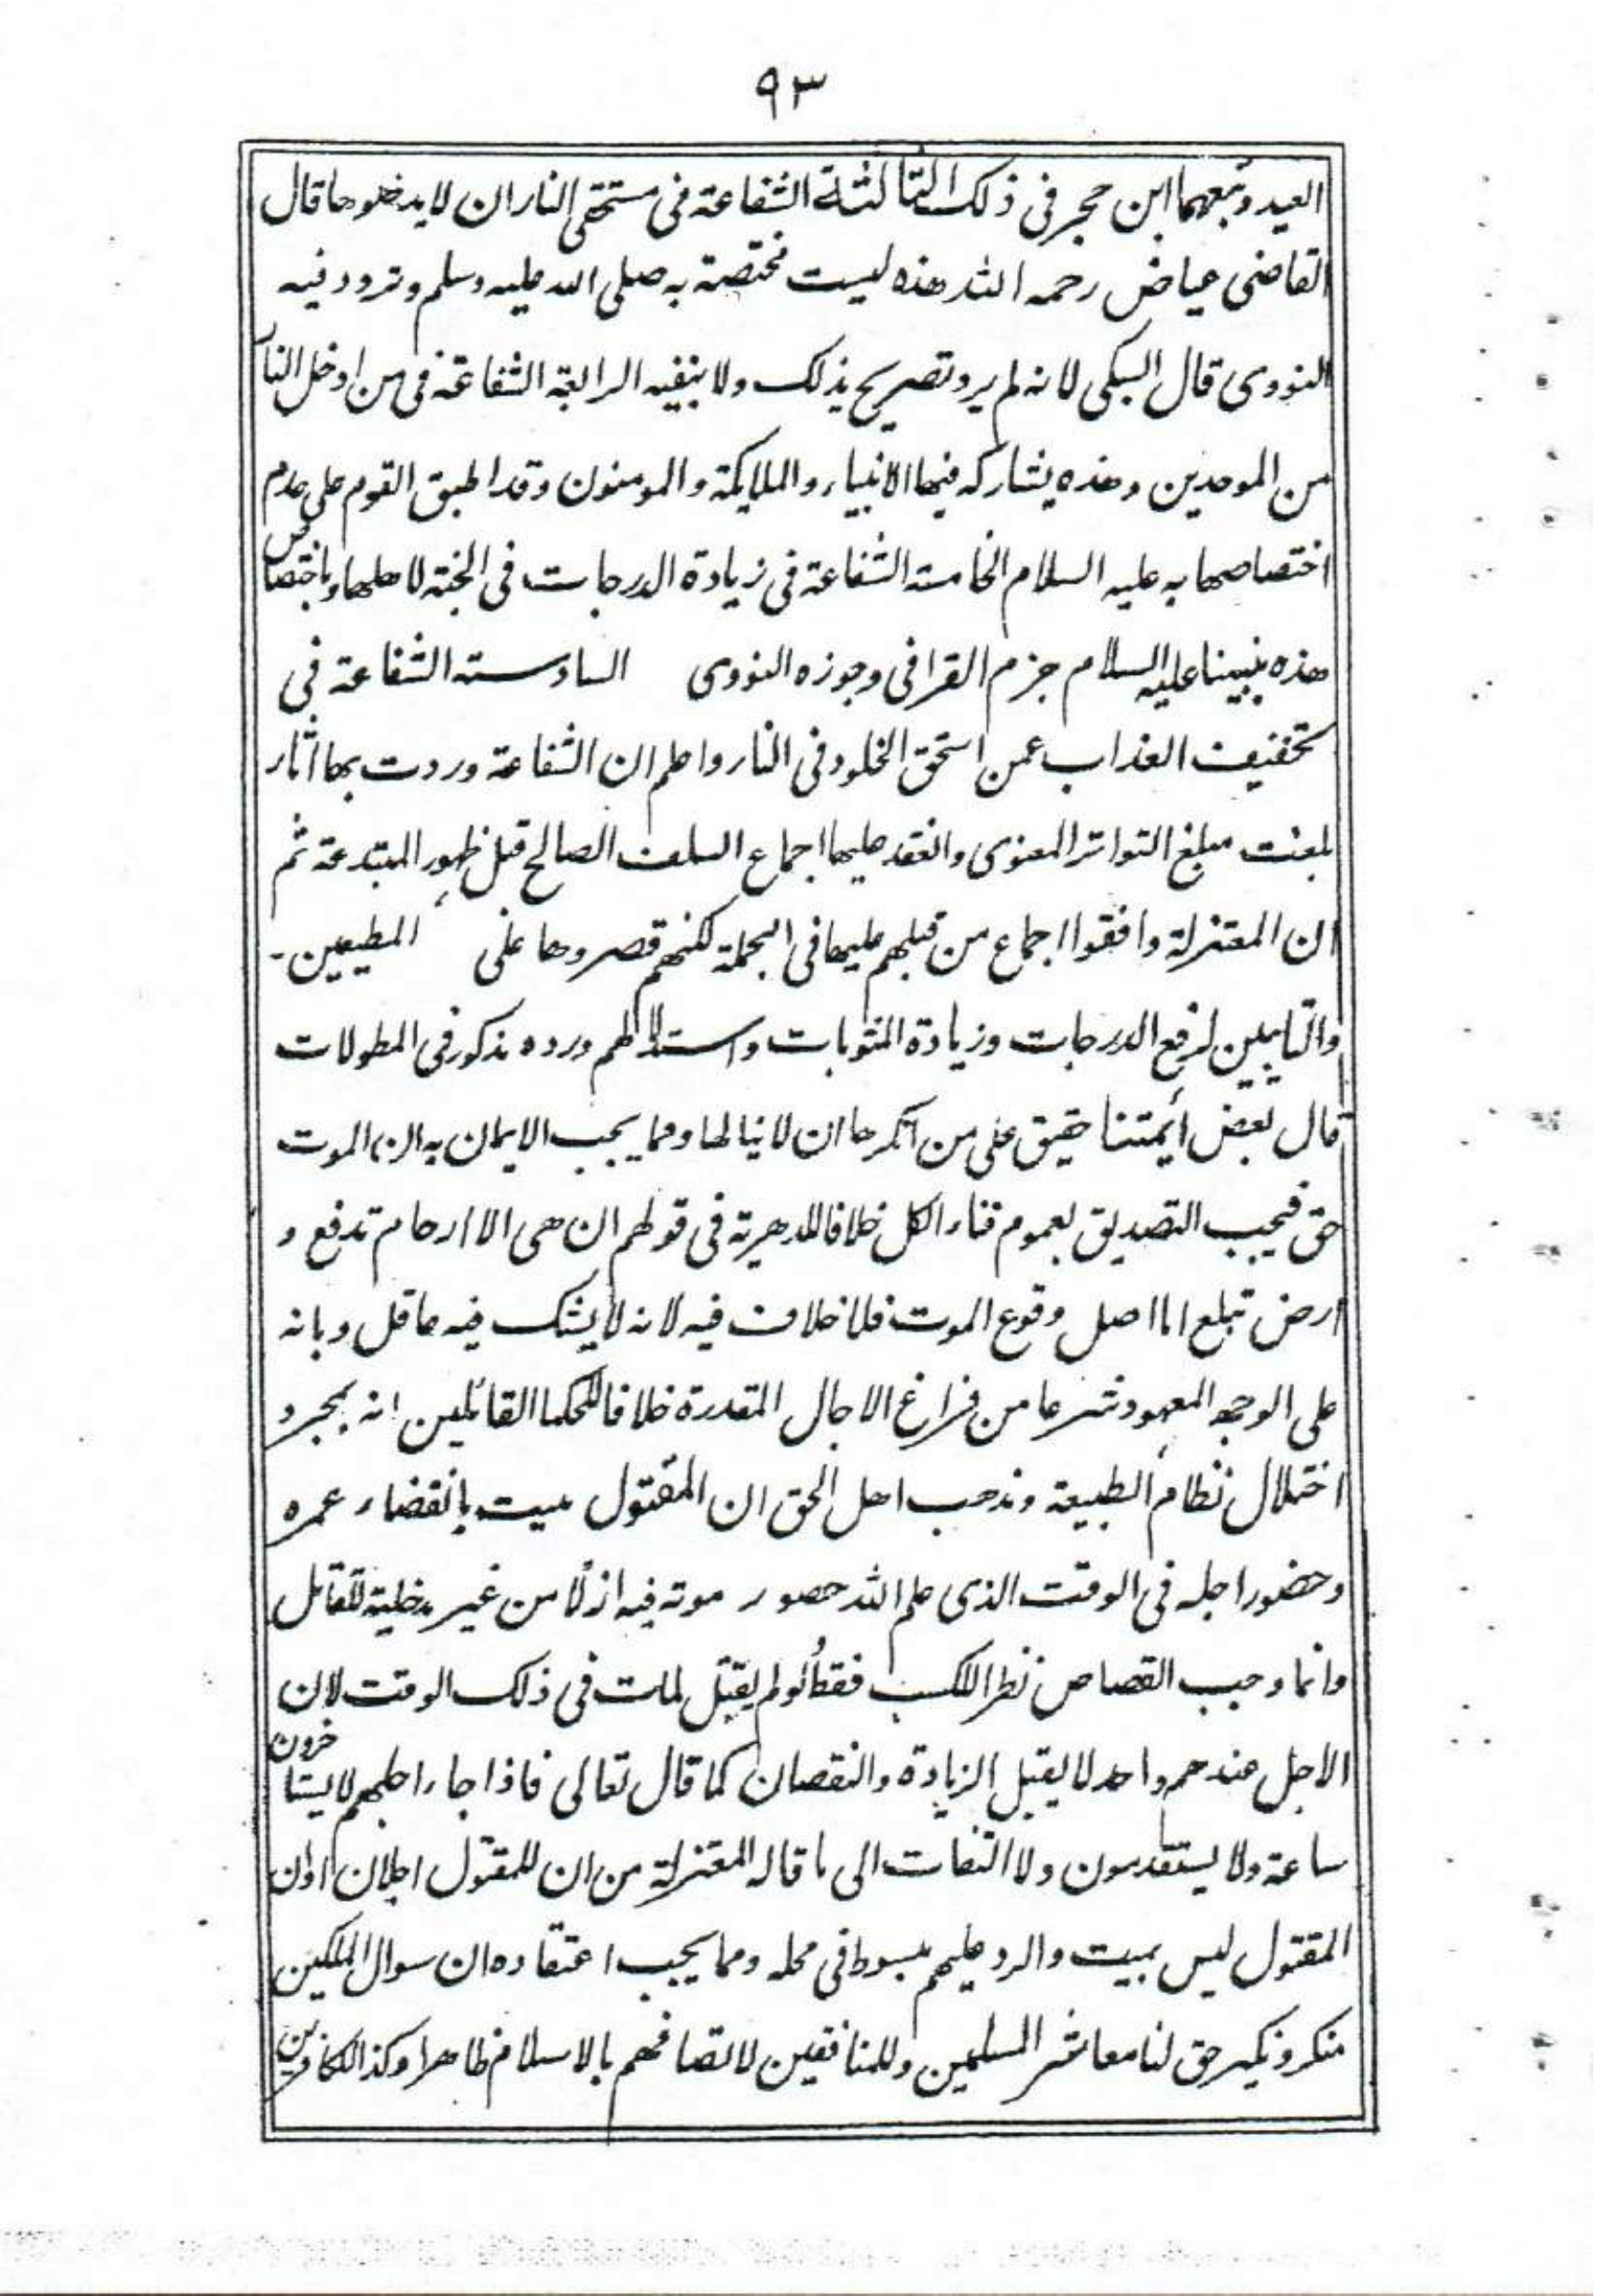 ٩٣
العيد وتبعهما ابن حجر فى ذلك الثالثة الشفاعة فى مستحقى النار ان لا يدخلوها قال
القاضى عياض رحمه الله هذه ليست مختصة به صلى الله عليه وسلم وتردد فيه
النووى قال السبكى لانه لم يرد تصريح بذلك ولا بنفيه الرابعة الشفاعة فى من ادخل النار
من الموحدين وهذه يشاركه فيها الانبياء والملايكة والمومنون وقد اطبق القوم على عدم
اختصاصها به عليه السلام الخامسة الشفاعة فى زيادة الدرجات فى الجنة لاهلها وباختصاص
هذه بنبينا عليه السلام جزم القرافى وجوزه النووى السادسة الشفاعة فى
تخفيف العذاب عمن استحق الخلود فى النار واعلم ان الشفاعة وردت بها آثار
بلغت مبلغ التواتر المعنوى وانعقد عليها اجماع السلف الصالح قبل ظهور المبتدعة ثم
ان المعتزلة وافقوا اجماع من قبلهم عليها فى الجملة لكنهم قصروها على المطيعين-
والتايبين لرفع الدرجات وزيادة المثوبات واستدلالهم ورده مذكور فى المطولات
قال بعض أيمتنا حقيق على من انكرها ان لا ينالها ومما يجب الايمان به ان الموت
حق فيجب التصديق بعموم فناء الكل خلافا للدهرية فى قولهم ان هى الا ارحام تدفع و
ارض تبلع اما اصل وقوع الموت فلا خلاف فيه لانه لا يشك فيه عاقل وبانه
على الوجه المعهود شرعا من فراغ الاجال المقدرة خلافا للحكما القائلين انه بمجرد
اختلال نظام الطبيعة ومذهب اهل الحق ان المقتول ميت بانقضاء عمره
وحضور اجله فى الوقت الذى علم الله حصور موته فيه ازلا من غير مدخلية للقاتل
وانما وجب القصاص نظرا للكسب فقط لو لم يقتل لمات فى ذلك الوقت لان
الاجل عندهم واحد لا يقبل الزيادة والنقصان كما قال تعالى فاذا جاء اجلهم لا يستاخرون
ساعة ولا يستقدمون ولا التفات الى ما قاله المعتزلة من ان للمقتول اجلان او ان
المقتول ليس بميت والرد عليهم مبسوط فى محله ومما يجب اعتقاده ان سوال الملكين
منكر ونكير حق لنا معاشر المسلمين وللمنافقين لاتصافهم بالاسلام ظاهرا وكذا للكافرين